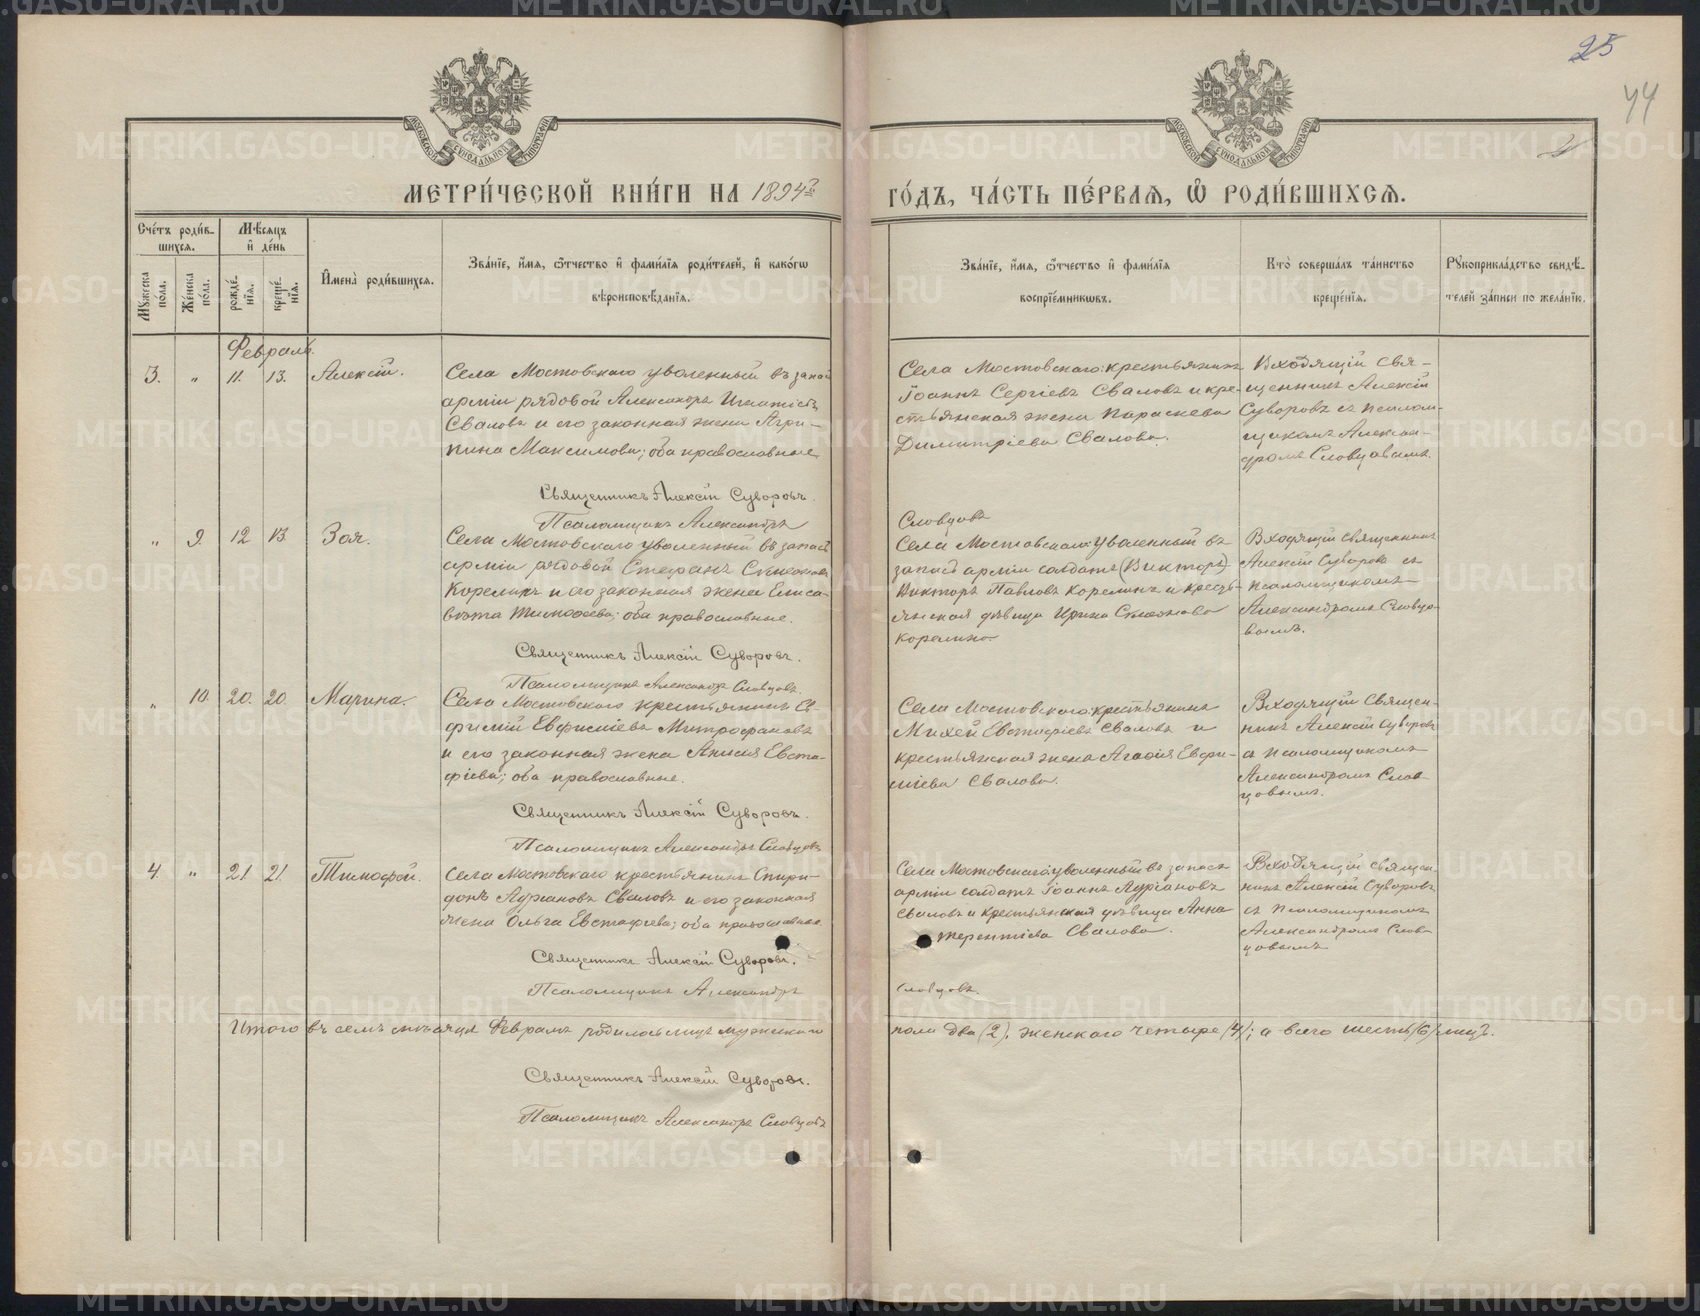 25
44
2
МОСКОВСКОЙ СѴНОДАЛЬНОЙ ТИПОГРАФІИ
МОСКОВСКОЙ СѴНОДАЛЬНОЙ ТИПОГРАФІИ
МЕТРИ́ЧЕСКОЙ КНИ́ГИ НА 1894й
ГО́ДЪ, ЧА́СТЬ ПЕ́РВАѦ, Ѿ РОДИ́ВШИХСѦ.
Сче́тъ роди́в-
шихсѧ.
Мꙋ́жеска по́ла.
Же́нска по́ла.
Мѣ́сѧцъ
и҆ де́нь
рожде́-
нїѧ.
креще́-
нїѧ.
И҆мена̀ роди́вшихсѧ.
Зва́нїе, и҆́мѧ, ѻ҆́тчество и҆ фами́лїѧ роди́телей, и҆ како́гѡ
вѣроисповѣ́данїѧ.
Зва́нїе, и҆́мѧ, ѻ҆́тчество и҆ фами́лїѧ
воспрїе́мникѡвъ.
Кто̀ соверша́лъ та́инство
креще́нїѧ.
Рꙋкоприкла́дство свидѣ́-
телей за́писи по жела́нїю.
Февраль.
3. „ 11. 13. Алексій.
Села Мостовскаго уволенный въ запасъ
арміи рядовой Александръ Игнатіевъ
Сваловъ и его законная жена Агри-
пина Максимова; оба православные
Священникъ Алексій Суворовъ.
Псаломщикъ Александръ
Села Мостовскаго крестьянинъ
Іоаннъ Сергіевъ Сваловъ и кре-
стьянская жена Параскева
Димитріева Свалова.
Словцовъ
Входящій Свя-
щенникъ Алексій
Суворовъ съ псалом-
щикомъ Алексан-
дромъ Словцовымъ.
„ 9. 12 13. Зоя.
Села Мостовскаго уволенный въ запасъ
арміи рядовой Стефанъ Симеоновъ
Корелинъ и его законная жена Елиса-
вета Тимофеева; оба православные.
Священникъ Алексій Суворовъ.
Псаломщикъ Александръ Словцовъ.
Села Мостовскаго уволенный въ
запасъ арміи солдатъ (Викторъ)
Викторъ Павловъ Корелинъ и кресть-
янская дѣвица Ирина Симеонова
Корелина
Входящій Священникъ
Алексій Суворовъ съ
псаломщикомъ
Александромъ Словцо-
вымъ.
„ 10. 20. 20. Марина.
Села Мостовскаго крестьянинъ Ев-
фимій Евфиміевъ Митрофановъ
и его законная жена Анисія Евста-
фіева; оба православные.
Священникъ Алексій Суворовъ.
Псаломщикъ Александръ Словцовъ
Села Мостовскаго крестьянинъ
Михей Евстафіевъ Сваловъ и
крестьянская жена Агафія Евфи-
міева Свалова.
Входящій Священ-
никъ Алексій Суворовъ
съ псаломщикомъ
Александромъ Слов-
цовымъ.
4. „ 21 21. Тимофей.
Села Мостовскаго крестьянинъ Спири-
донъ Адріановъ Сваловъ и его законная
жена Ольга Евстафіева; оба православные
Священникъ Алексій Суворовъ.
Псаломщикъ Александръ
Села Мостовскаго уволенный въ запасъ
арміи солдатъ Іоаннъ Адріановъ
Сваловъ и крестьянская дѣвица Анна
Терентіева Свалова.
Словцовъ
Входящій Священ-
никъ Алексій Суворовъ
съ псаломщикомъ
Александромъ Слов-
цовымъ
Итого въ семъ мѣсяцѣ Февралѣ родилось лицъ мужскаго
пола два (2), женскаго четыре (4); а всего шесть (6) лицъ.
Священникъ Алексій Суворовъ.
Псаломщикъ Александръ Словцовъ
METRIKI.GASO-URAL.RU